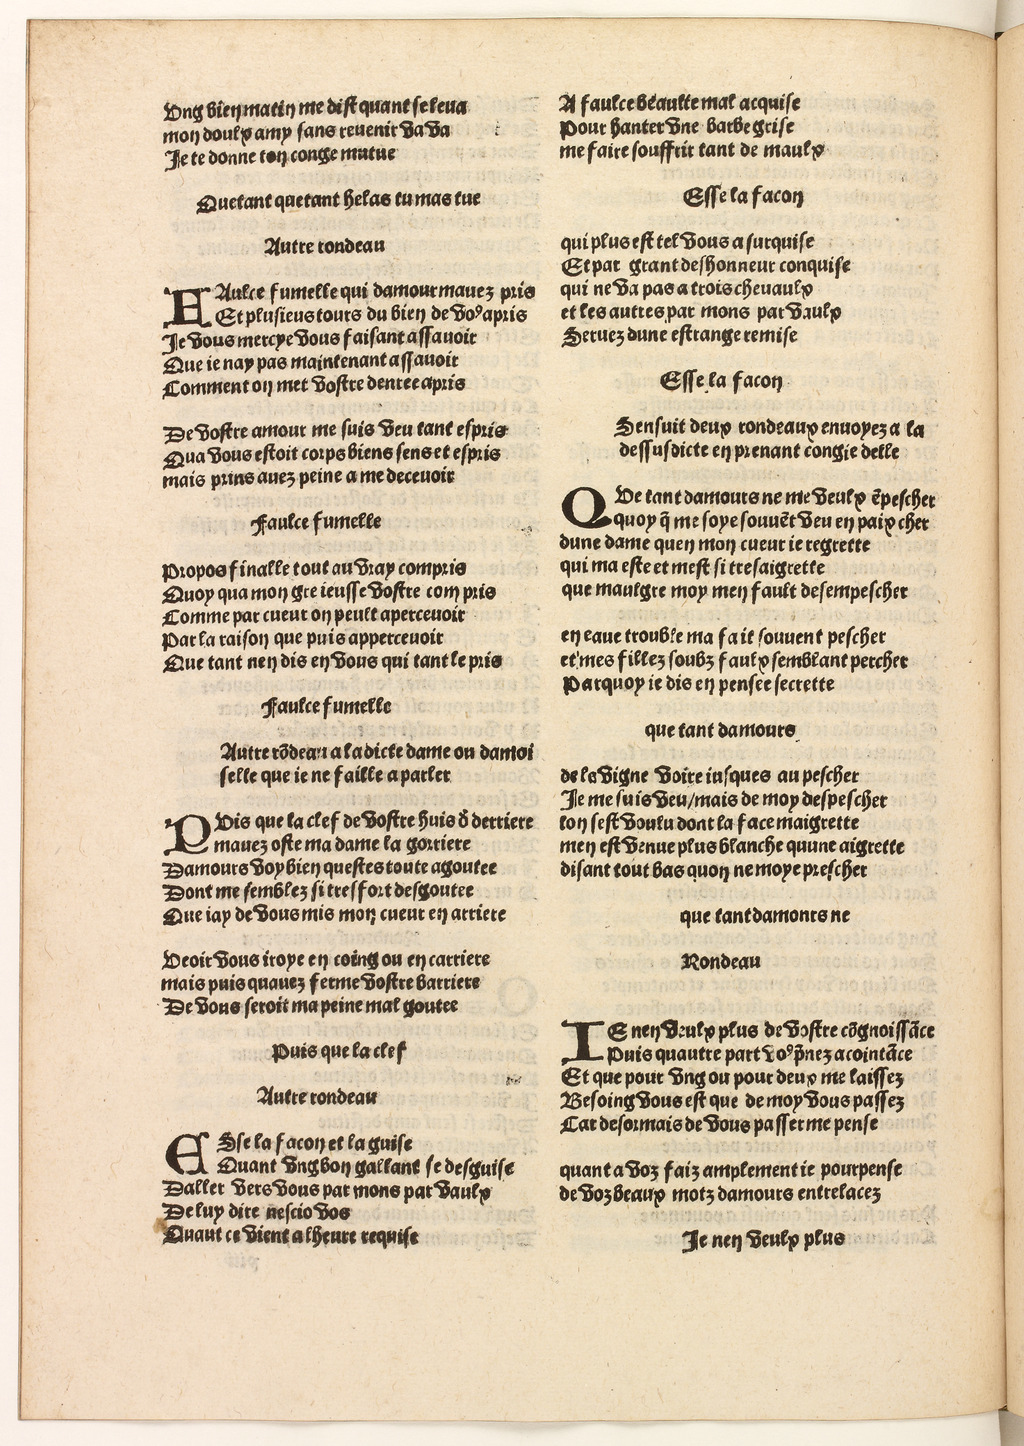 Vng bien matin me dist quant se leua
mon doulx amy sans reuenir va va
Je te donne ton conge mutue
Quetant quetant helas tu mas tue
Autre rondeau
FAulce fumelle qui damour mauez pris
Et plusieus tours du bien de voꝰ apris
Je vous mercye vous faisant assauoir
Que ie nay pas maintenant assauoir
Comment on met vostre dentee apris
De vostre amour me suis veu tant espris
Qua vous estoit corps biens sens et espris
mais prins auez peine a me deceuoir
Faulce fumelle
Propos finalle tout au vray compris
Quoy qua mon gre ieusse vostre com pris
Comme par cueur on peult aperceuoir
Par la raison que puis apperceuoir
Que tant nen dis en vous qui tant le pris
Faulce fumelle
Autre rõdeau a la dicte dame ou damoi
selle que ie ne faille a parler
PVis que la clef de vostre huis d̃ derriere
mauez oste ma dame la gorriere
Damours voy bien questes toute agoutee
Dont me semblez si tresfort desgoutee
Que iay de vous mis mon cueur en arriere
Veoir vous iroye en coing ou en carriere
mais puis quauez ferme vostre barriere
De vous seroit ma peine mal goutee
Puis que la clef
Aultre rondeau
ESse la facon et la guise
Quant vng bon gallant se desguise
Daller vers vous par mons par vaulx
De luy dire nescio vos
Quant ce vient a lheure requise
A faulce beaulte mal acquise
Pour hanter vne barbe grise
me faire souffrir tant de maulx
Esse la facon
qui plus est tel vous a surquise
Et par grant deshonneur conquise
qui ne va pas a trois cheuaulx
et les autres par mons par vaulx
Seruez dune estrange remise
Esse la facon
Sensuit deux rondeaux enuoyez a la
dessusdicte en prenant congie delle
QVe tant damours ne me veulx ẽpescher
quoy q̃ me soye souuẽt veu en paix cher
dune dame quen mon cueur ie regrette
qui ma este et mest si tresaigrette
que maulgre moy men fault desempescher
en eaue trouble ma fait souuent pescher
et mes fillez soubz faulx semblant percher
Parquoy ie dis en pensee secrette
que tant damours
de la vigne voire iusques au pescher
Je me suis veu/mais de moy despescher
lon sest voulu dont la face maigrette
men est venue plus blanche quune aigrette
disant tout bas quon ne moye prescher
que tant damonrs ne
Rondeau
IE nen veulx plus de vostre cõgnoissãce
Puis quautre part voꝰ p̃nez acointãce
Et que pour vng ou pour deux me laissez
Besoing vous est que de moy vous passez
Car desormais de vous passer me pense
quant a voz faiz amplement ie pourpense
de voz beaux motz damours entrelacez
Je nen veulx plus